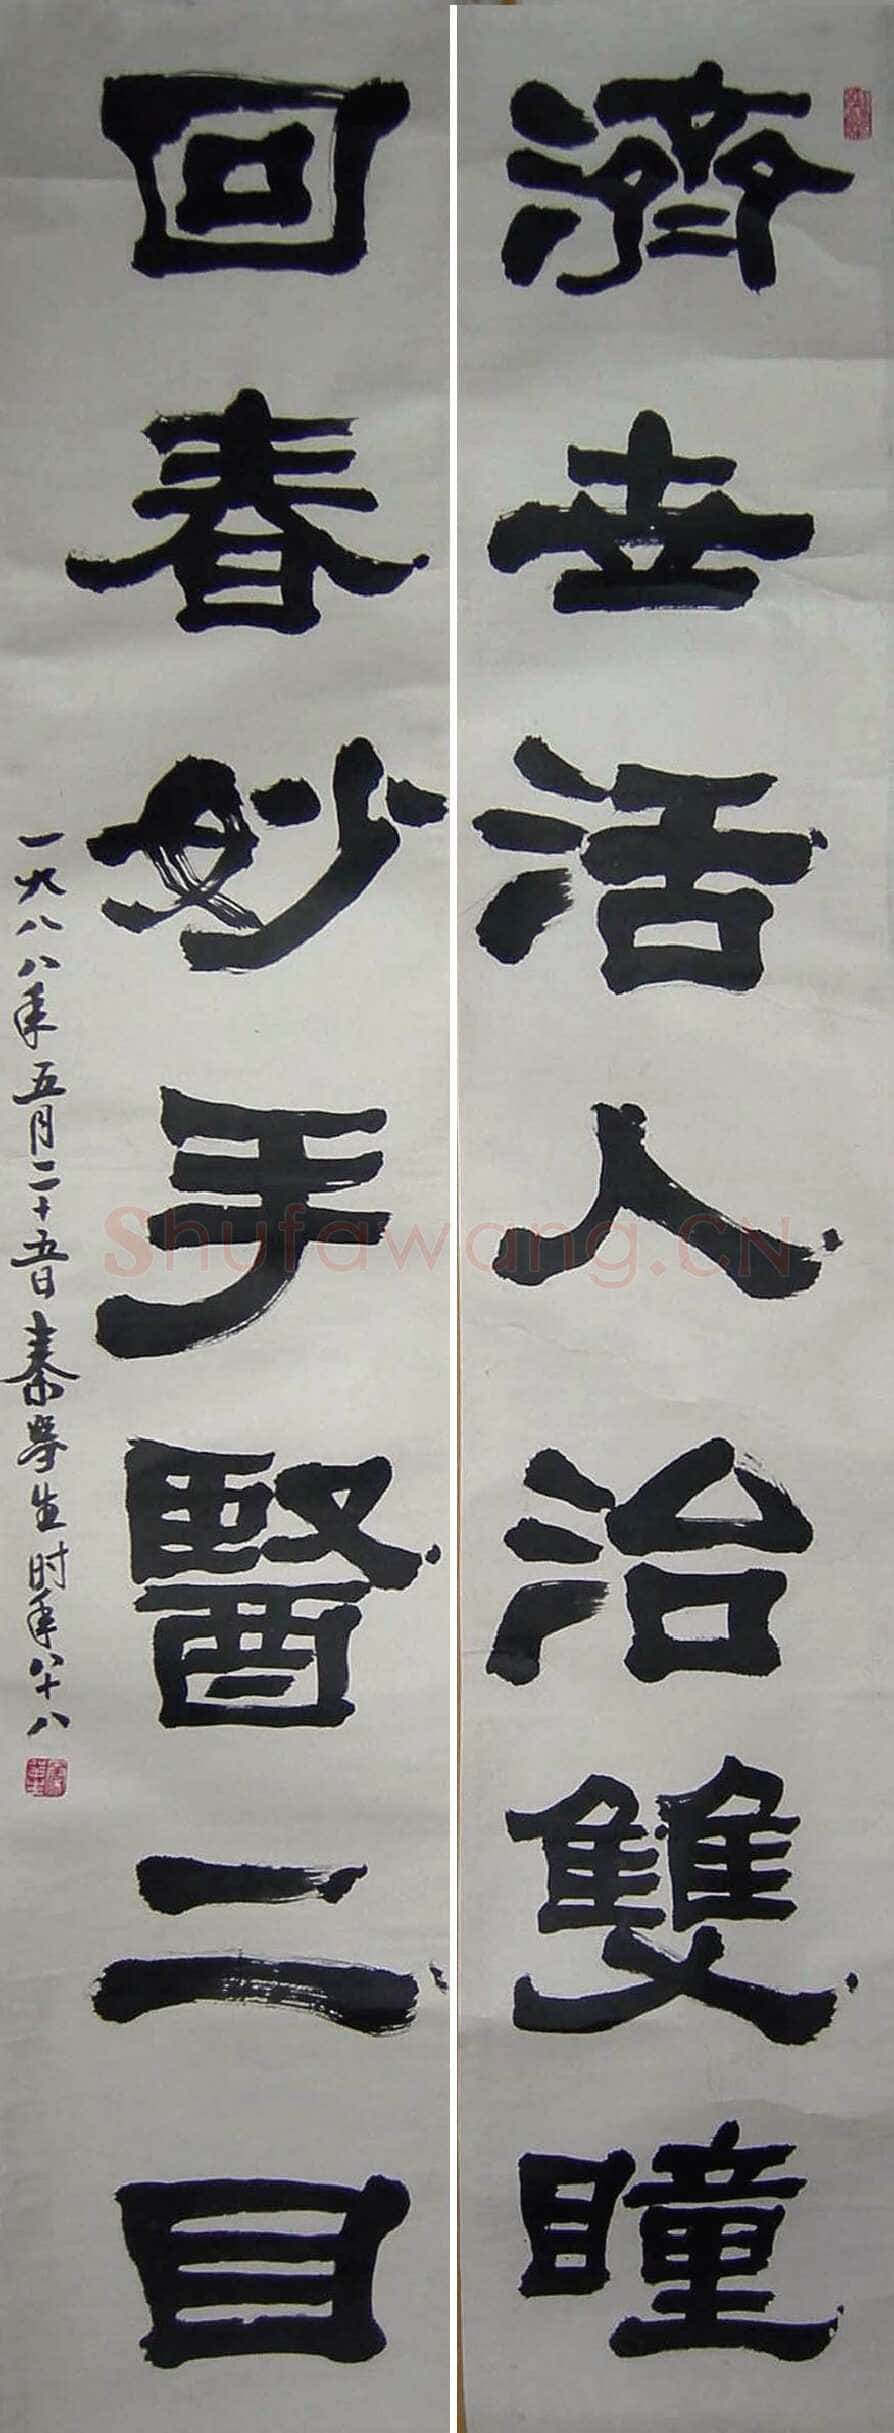 濟世活人治雙瞳
回春妙手醫二目
一九八八年五月二十五日秦學生时年八十八
Shufawang.CN